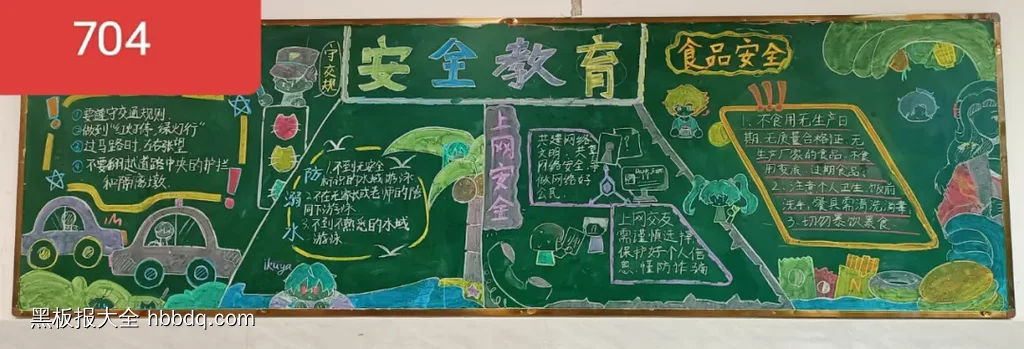 704
安全教育
守交规
①要遵守交通规则
②做到"红灯停,绿灯行"
③过马路时,左右张望
④不要翻越道路中央的护栏
和隔离墩
防溺水
1.不到无安全
标识的水域游泳
2.不在无家长或老师的陪
同下游泳
3.不到不熟悉的水域
游泳
ikuya
上网安全
共建网络
文明,人人
做网络好
上网交友
需谨慎选择
保护好个人信
息,懂防诈骗
食品安全
1、不食用无生产日
期、无质量合格证、无
生产厂家的食品,不食
用变质、过期食品。
2、注意个人卫生,饭前
洗手、餐具常清洗消毒
3、切勿暴饮暴食
黑板报大全 hbbdq.com